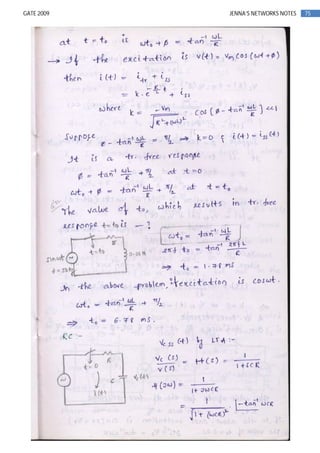 GATE 2009 JENNA'S NETWORKS NOTES 75
at t = t₀ is ωt₀ + φ = tan⁻¹ ωL/R
→ If the excitation is v(t) = Vm cos(ωt+φ)
then i(t) = i_tr + i_ss
= k·e^(-R/L t) + i_ss
where k = -Vm/√(R²+(ωL)²) cos[φ - tan⁻¹ ωL/R]
Suppose φ - tan⁻¹ ωL/R = π/2 ⇒ k=0 & i(t) = i_ss(t)
It is a tr. free response
φ = tan⁻¹ ωL/R + π/2 at t=0
ωt₀ + φ = tan⁻¹ ωL/R + π/2 at t = t₀
The value of t₀, which results in tr. free
response t=t₀ is —:
ωt₀ = tan⁻¹ ωL/R
R
t=t₀
2πf t₀ = tan⁻¹ 2πfL/R
⇒ t₀ = 1.78 ms
In the above problem, if excitation is cosωt.
ωt₀ = tan⁻¹ ωL/R + π/2
⇒ t₀ = 6.78 ms.
RC :-
Vc ss (t) by LTA :-
R
t=0
C
i(t)
Vc(s)/V(s) = H(s) = 1/(1+SCR)
H(jω) = 1/(1+jωCR)
= 1/√(1+(ωCR)²) ∠-tan⁻¹ ωCR